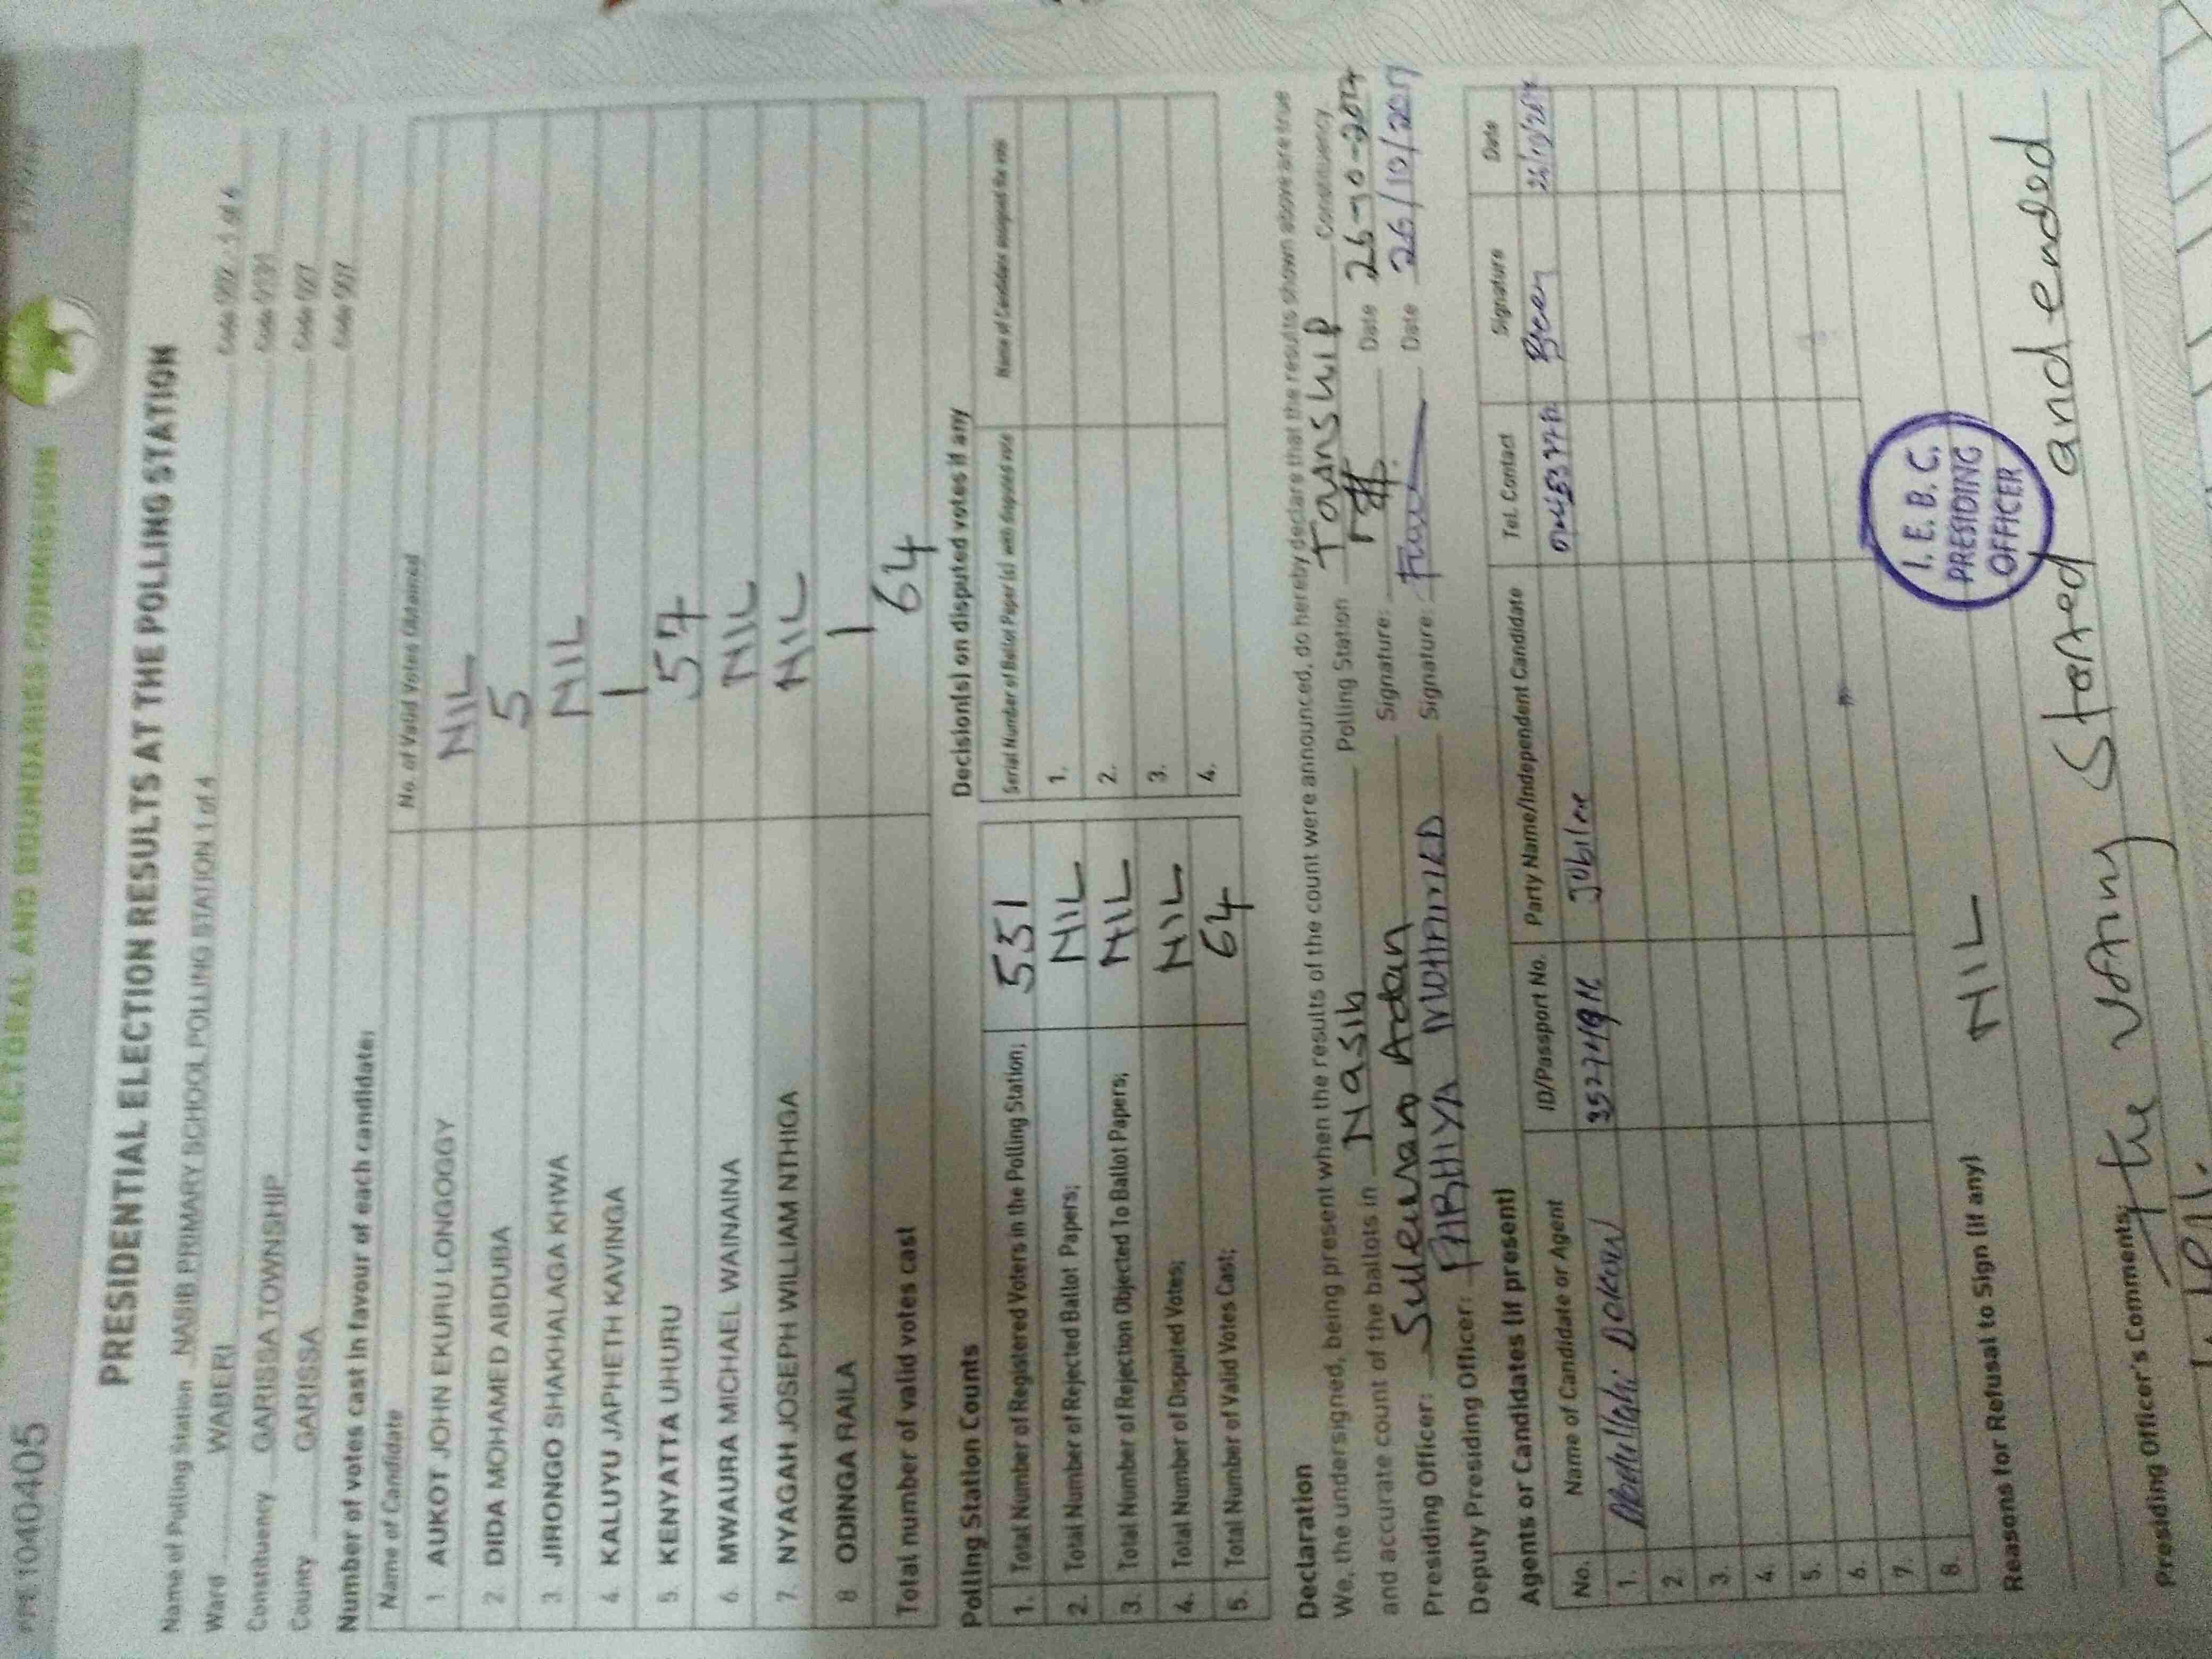 1040405
ELECTORAL AND BOUNDARIES COMMISSION
PRESIDENTIAL ELECTION RESULTS AT THE POLLING STATION
Name of Polling Station NASIB PRIMARY SCHOOL POLLING STATION 1 of 4
Ward WABERI
Constituency GARISSA TOWNSHIP
County GARISSA
Number of votes cast in favour of each candidate:
Name of Candidate No. of Valid Votes Obtained
1 AUKOT JOHN EKURU LONGOGGY NIL
2. DIDA MOHAMED ABDUBA 5
3 JIRONGO SHAKHALAGA KHWA NIL
4. KALUYU JAPHETH KAVINGA 1
5. KENYATTA UHURU 57
6. MWAURA MICHAEL WAINAINA NIL
7. NYAGAH JOSEPH WILLIAM NTHIGA NIL
8 ODINGA RAILA 1
Total number of valid votes cast 64
Polling Station Counts
1. Total Number of Registered Voters in the Polling Station; 551
2. Total Number of Rejected Ballot Papers; NIL
3. Total Number of Rejection Objected To Ballot Papers; NIL
4. Total Number of Disputed Votes; NIL
5. Total Number of Valid Votes Cast; 64
Decision(s) on disputed votes if any
Serial Number of Ballot Paper (s) with disputed vote Name of Candidate assigned the vote
1.
2.
3.
4.
Declaration
We, the undersigned, being present when the results of the count were announced, do hereby declare that the results shown above are true
and accurate count of the ballots in Nasib Polling Station Township Constituency
Presiding Officer: Suleiman Adan Signature: Date 26-10-2017
Deputy Presiding Officer: FARHIYA MOHAMED Signature: Date 26/10/2017
Agents or Candidates (if present)
No. Name of Candidate or Agent ID/Passport No. Party Name/Independent Candidate Tel. Contact Signature Date
1. Abdullahi Jubilee
2.
3.
4.
5.
6.
7.
8.
I. E. B. C.
PRESIDING
OFFICER
Reasons for Refusal to Sign (if any) NIL
Presiding Officer's Comments: The voting started and ended